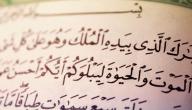 بِسْمِ
تَبَٰرَكَ ٱلَّذِى بِيَدِهِ ٱلْمُلْكُ وَهُوَ عَلَىٰ كُلِّ
ٱلْمَوْتَ وَٱلْحَيَوٰةَ لِيَبْلُوَكُمْ أَيُّكُمْ أَحْسَنُ
سَبْعَ سَمَٰوَٰتٍ طِبَاقًا مَّا